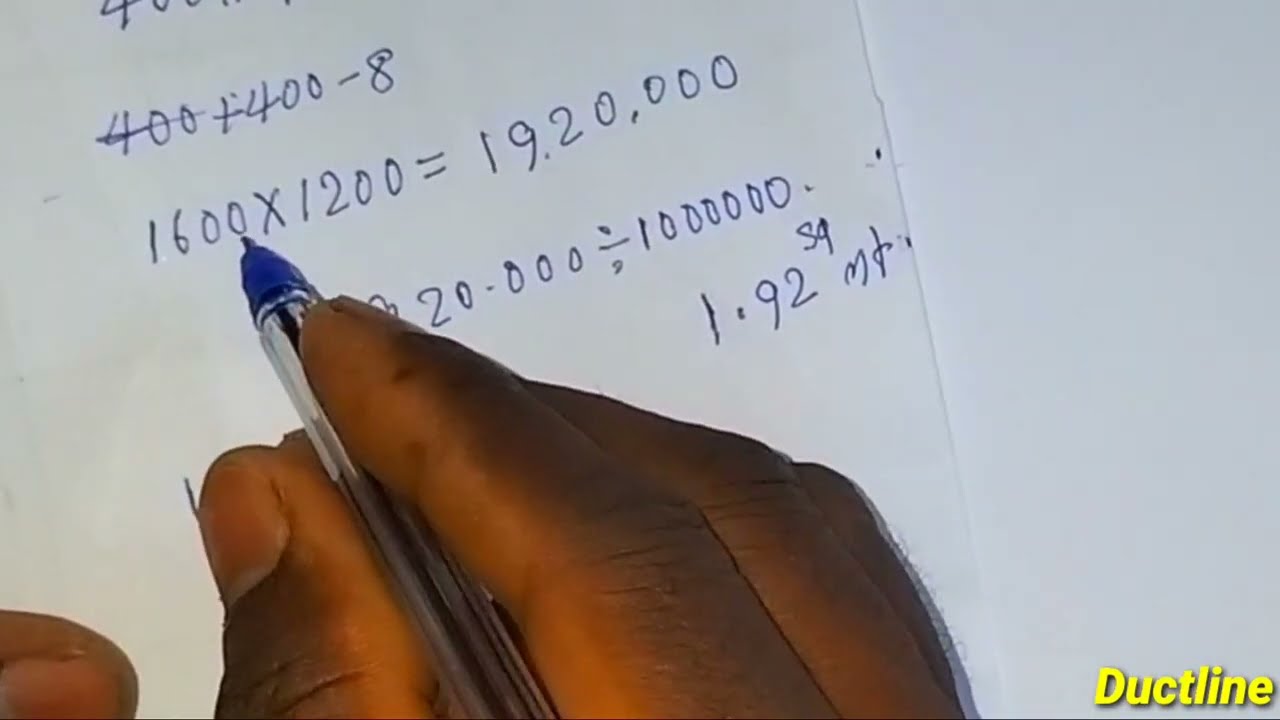 400+400-8
1600x1200=19.20,000
20.000÷1000000.
1.92 sq mt.
Ductline